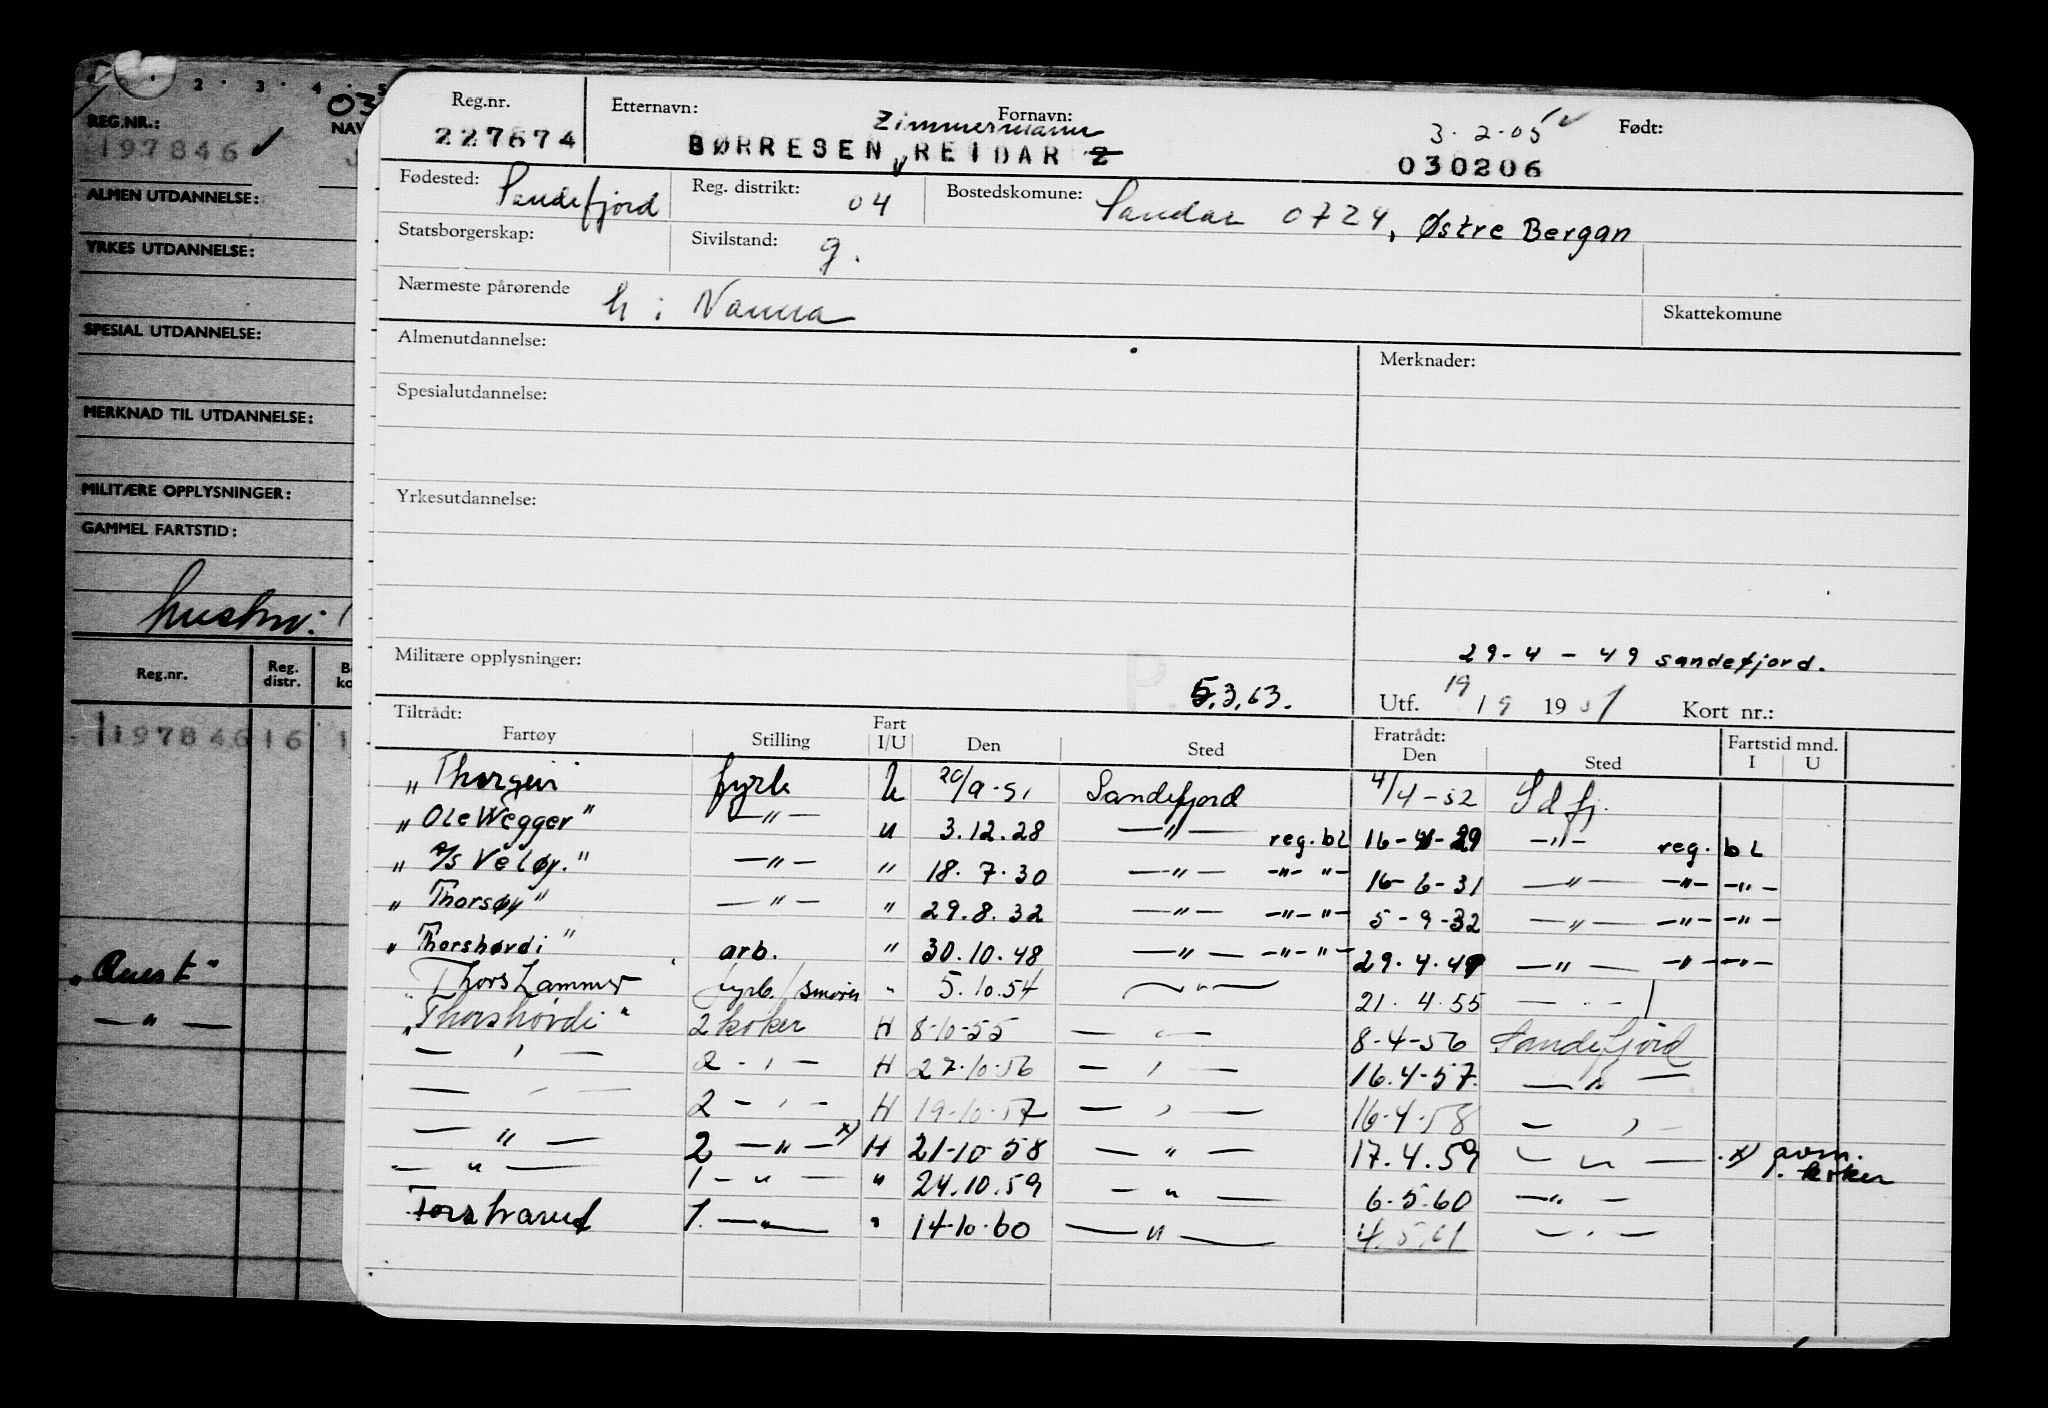 2 · 3 · 4 · 5
03
REG.NR.: NAV
197846 ✓
ALMEN UTDANNELSE:
YRKES UTDANNELSE:
SPESIAL UTDANNELSE:
MERKNAD TIL UTDANNELSE:
MILITÆRE OPPLYSNINGER:
GAMMEL FARTSTID:
hustru:
Reg.nr. Reg. distr. B ko
197846 16 1
"Quest"
— " —
Reg.nr. Etternavn: Fornavn: Født:
Zimmermann 3.2.05 ✓
227674 BØRRESEN REIDAR Z 030206
Fødested: Sandefjord Reg. distrikt: 04 Bostedskomune: Sandar 0724, Østre Bergan
Statsborgerskap: Sivilstand: g.
Nærmeste pårørende h: Nanna Skattekomune
Almenutdannelse: Merknader:
Spesialutdannelse:
Yrkesutdannelse:
29-4-49 sandefjord.
Militære opplysninger: P.
5.3.63. Utf. 19 19 1951 Kort nr.:
Tiltrådt: Fart Fratrådt: Fartstid mnd.
Fartøy Stilling I/U Den Sted Den Sted I U
" Thorgeir" fyrb U 20/9-51 Sandefjord 4/4-52 Sdfj.
" Ole Wegger" — " — u 3.12.28 — " — reg. bl 16-4-29 — " — reg. bl
" A/S Veløy." — " — " 18.7.30 — " — — " — " — 16-6-31 — " — — " — — " —
" Thorsøy" — " — " 29.8.32 — " — — " — " — 5-9-32 — " — — " — — " —
" Thorshøvdi" arb. " 30.10.48 — " — — " — " — 29.4.49 — " — — " — — " —
" Thorshammer fyrb./smører " 5.10.54 — " — 21.4.55 — " —
" Thorshøvdi" 2 koker H 8-10-55 — " — 8-4-56 Sandefjord
— " — 2 — " — H 27.10.56 — " — 16.4-57. — " —
— " — 2 — " — H 19-10-57 — " — 16-4-58 — " —
— " — 2 — " — x) H 21-10-58 — " — 17.4.59 — " — x) avm. 1. koker
— " — 1 — " — " 24.10.59 — " — 6.5.60 — " —
Torshavet 1. — " — " 14-10-60 — " — 4.5.61 — " —